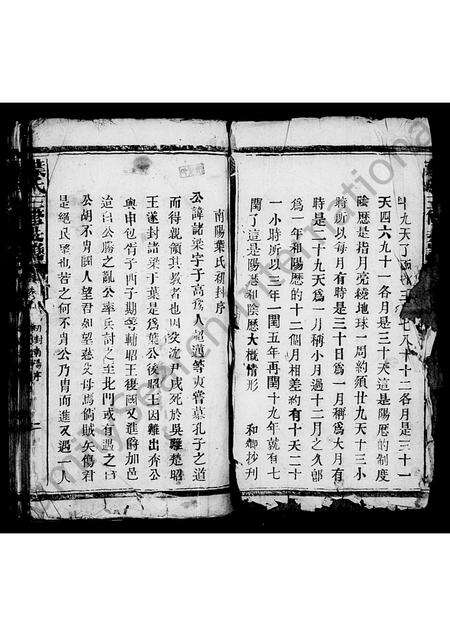 斗九天了 三 七八十十二各月是三十一
天四六九十一各月是三十天這是陽歷的制度
陰歷是指月亮繞地球一周約須廿九天十三小
時所以每月有時是三十日爲一月稱爲大月有
時是二十九天爲一月稱小月過十二月之久卽
爲一年和陽歷的十二個月相差約有十天二十
一小時所以三年一閏五年再閏十九年就有七
閏了這是陽歷和陰歷大概情形
和鄉抄刋
南陽葉氏初封序
公諱諸梁字子高爲人
而得親領其教者也因父沈尹戌死於吳難楚昭
王遂封諸梁于葉是爲葉公後昭王因難出奔公
與申包胥子西子期等輔昭王復國又進爵加邑
迨白公勝之亂公率兵討之至北門或有遇之曰
公胡不冑國人望君如望慈父母焉倘賊矢傷君
是絕民望也若之何不冑公乃冑而進又遇一人
初封南陽序